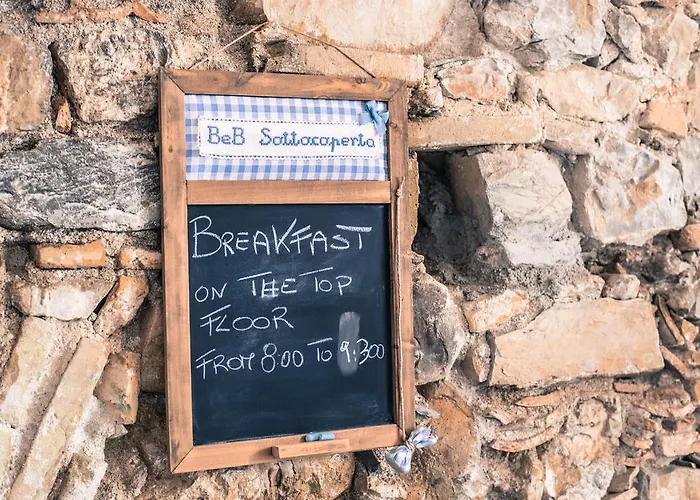 BeB Sottocoperta
BREAKFAST
ON THE TOP
FLOOR
FROM 8:00 TO 9:300